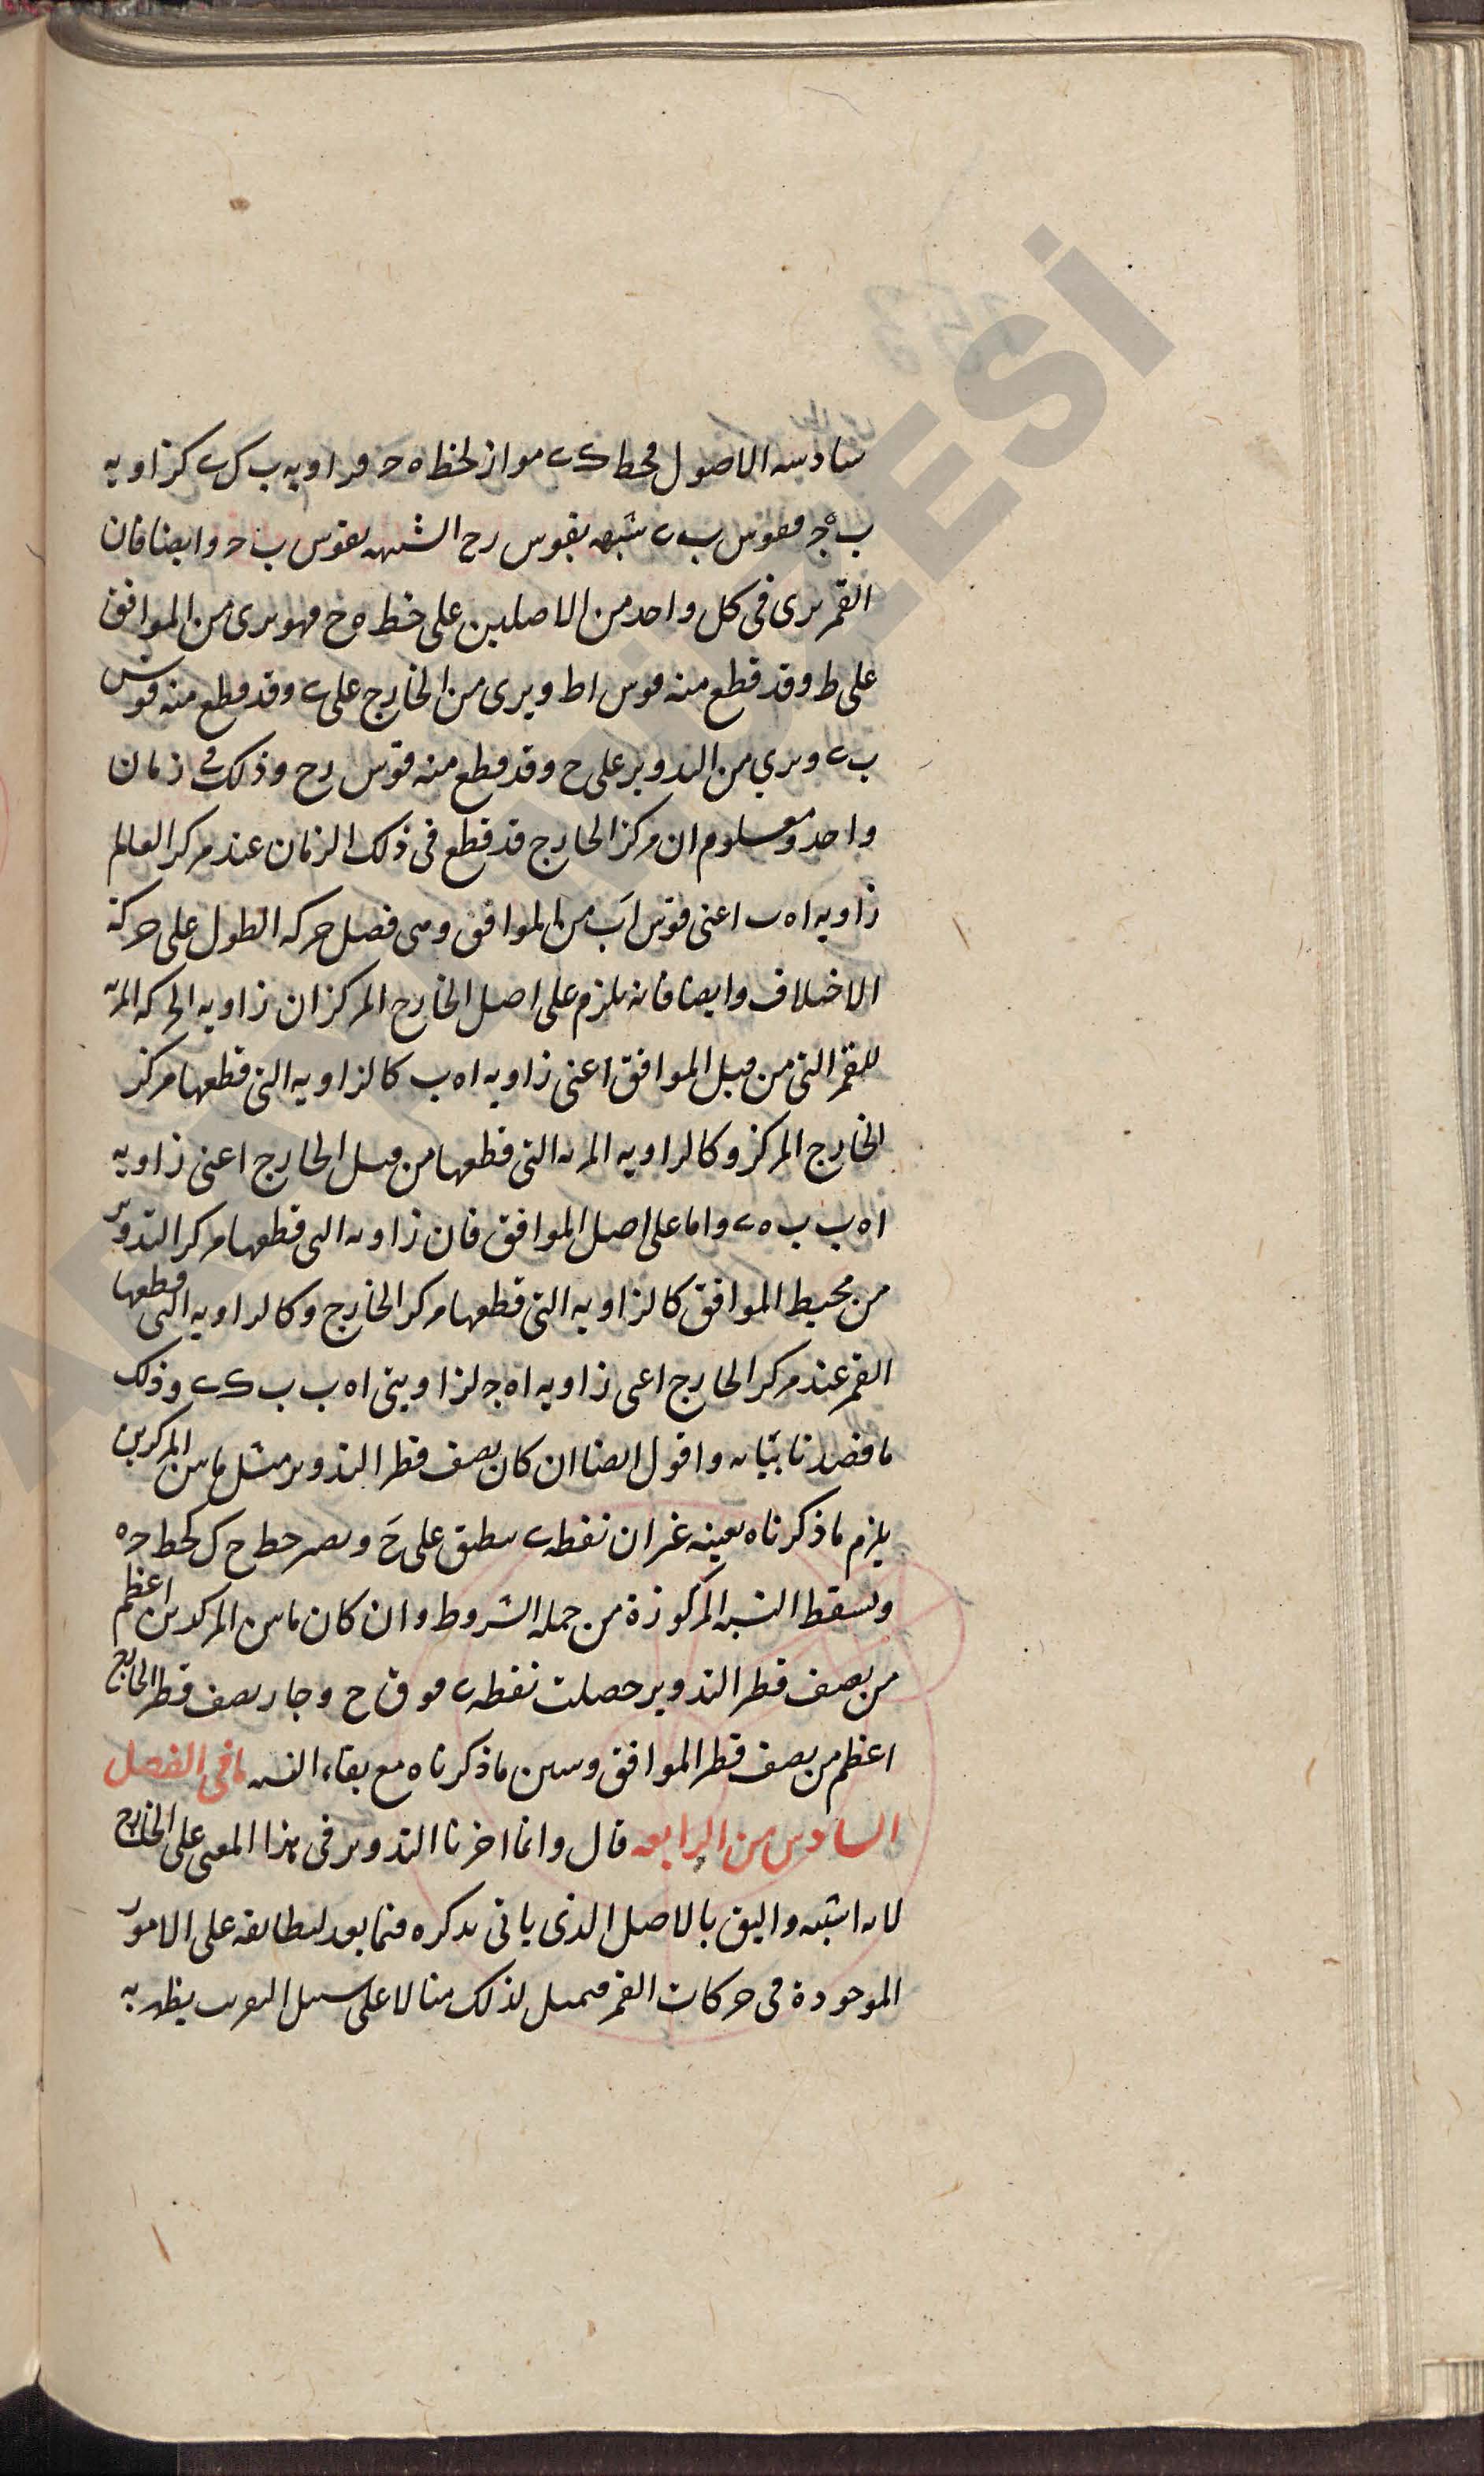 سادسه الاصول فخط ك ى مواز لخط ه ح فزاويه ب ك ى كزاويه
ب ه ح فقوس ب ى شبيهه بقوس رح الشبيهه بقوس ب ح وايضا فان
القمر يرى فى كل واحد من الاصلين على خط ه ح فهو يرى من الموافق
على ط وقد قطع منه قوس اط ويرى من الخارج على ى وقد قطع منه قوس
ب ى ويري من التدوير على ح وقد قطع منه قوس رح وذلك فى زمان
واحد ومعلوم ان مركز الخارج قد قطع فى ذلك الزمان عند مركز العالم
زاويه اه ب اعنى قوس اب من الموافق وهى فصل حركه الطول على حركة
الاختلاف وايضا فانه يلزم على اصل الخارج المركز ان زاويه الحركه المرئيه
للقمر التى من قبل الموافق اعنى زاويه اه ب كالزاويه التى قطعها مركز
الخارج المركز وكالزاويه المرئيه التى قطعها من قبل الخارج اعنى زاويه
اه ب ب ه ى واما على اصل الموافق فان زاويه التى قطعها مركز التدوير
من محيط الموافق كالزاويه التى قطعها مركز الخارج وكالزاويه التى قطعها
القمر عند مركز الخارج اعنى زاويه اه ح لزاويتى اه ب ب ك ى وذلك
ما قصدنا بيانه واقول ايضا ان كان نصف قطر التدوير مثل ما بين المركزين
يلزم ما ذكرناه بعينه غير ان نقطه ى ينطبق على ح ويصير خط ح ك كخط ح ه
ويسقط النسبه المركوزة من جمله الشروط وان كان ما بين المركزين اعظم
من نصف قطر التدوير حصلت نقطه ى فوق ح وجاز نصف قطر الخارج
اعظم من نصف قطر الموافق وتبين ما ذكرناه مع بقاء النسبه مافى الفصل
السادس من الرابعه قال وانما اخرنا التدوير فى هذا المعنى على الخارج
لانه اشبه واليق بالاصل الذى ياتى بذكره فيما بعد لتطابقه على الامور
الموجودة فى حركات القمر فيمثل لذلك مثالا على سبيل التقريب يظهر به